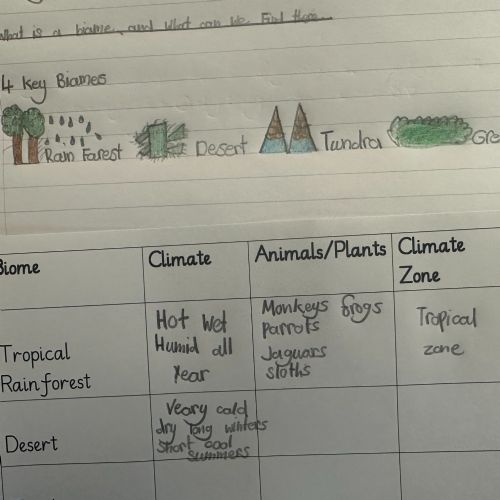 What is a biame, and what can we find there
4 Key Biames
Rain Farest Desert Tundra Gre
Biome Climate Animals/Plants Climate Zone
Tropical Rainforest
Hot wet
Humid all
Year
Monkeys frogs
parrots
Jaguars
sloths
Tropical
zone
Desert
Veary cold
dry long winters
short cool
summers